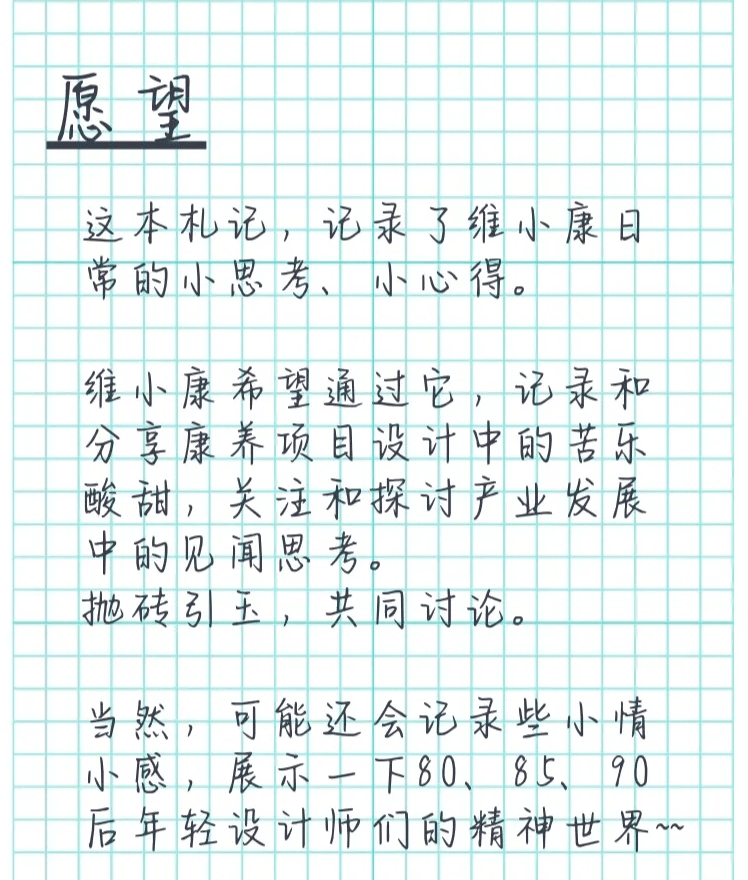 愿望
这本札记，记录了维小康日
常的小思考、小心得。
维小康希望通过它，记录和
分享康养项目设计中的苦乐
酸甜，关注和探讨产业发展
中的见闻思考。
抛砖引玉，共同讨论。
当然，可能还会记录些小情
小感，展示一下80、85、90
后年轻设计师们的精神世界~~